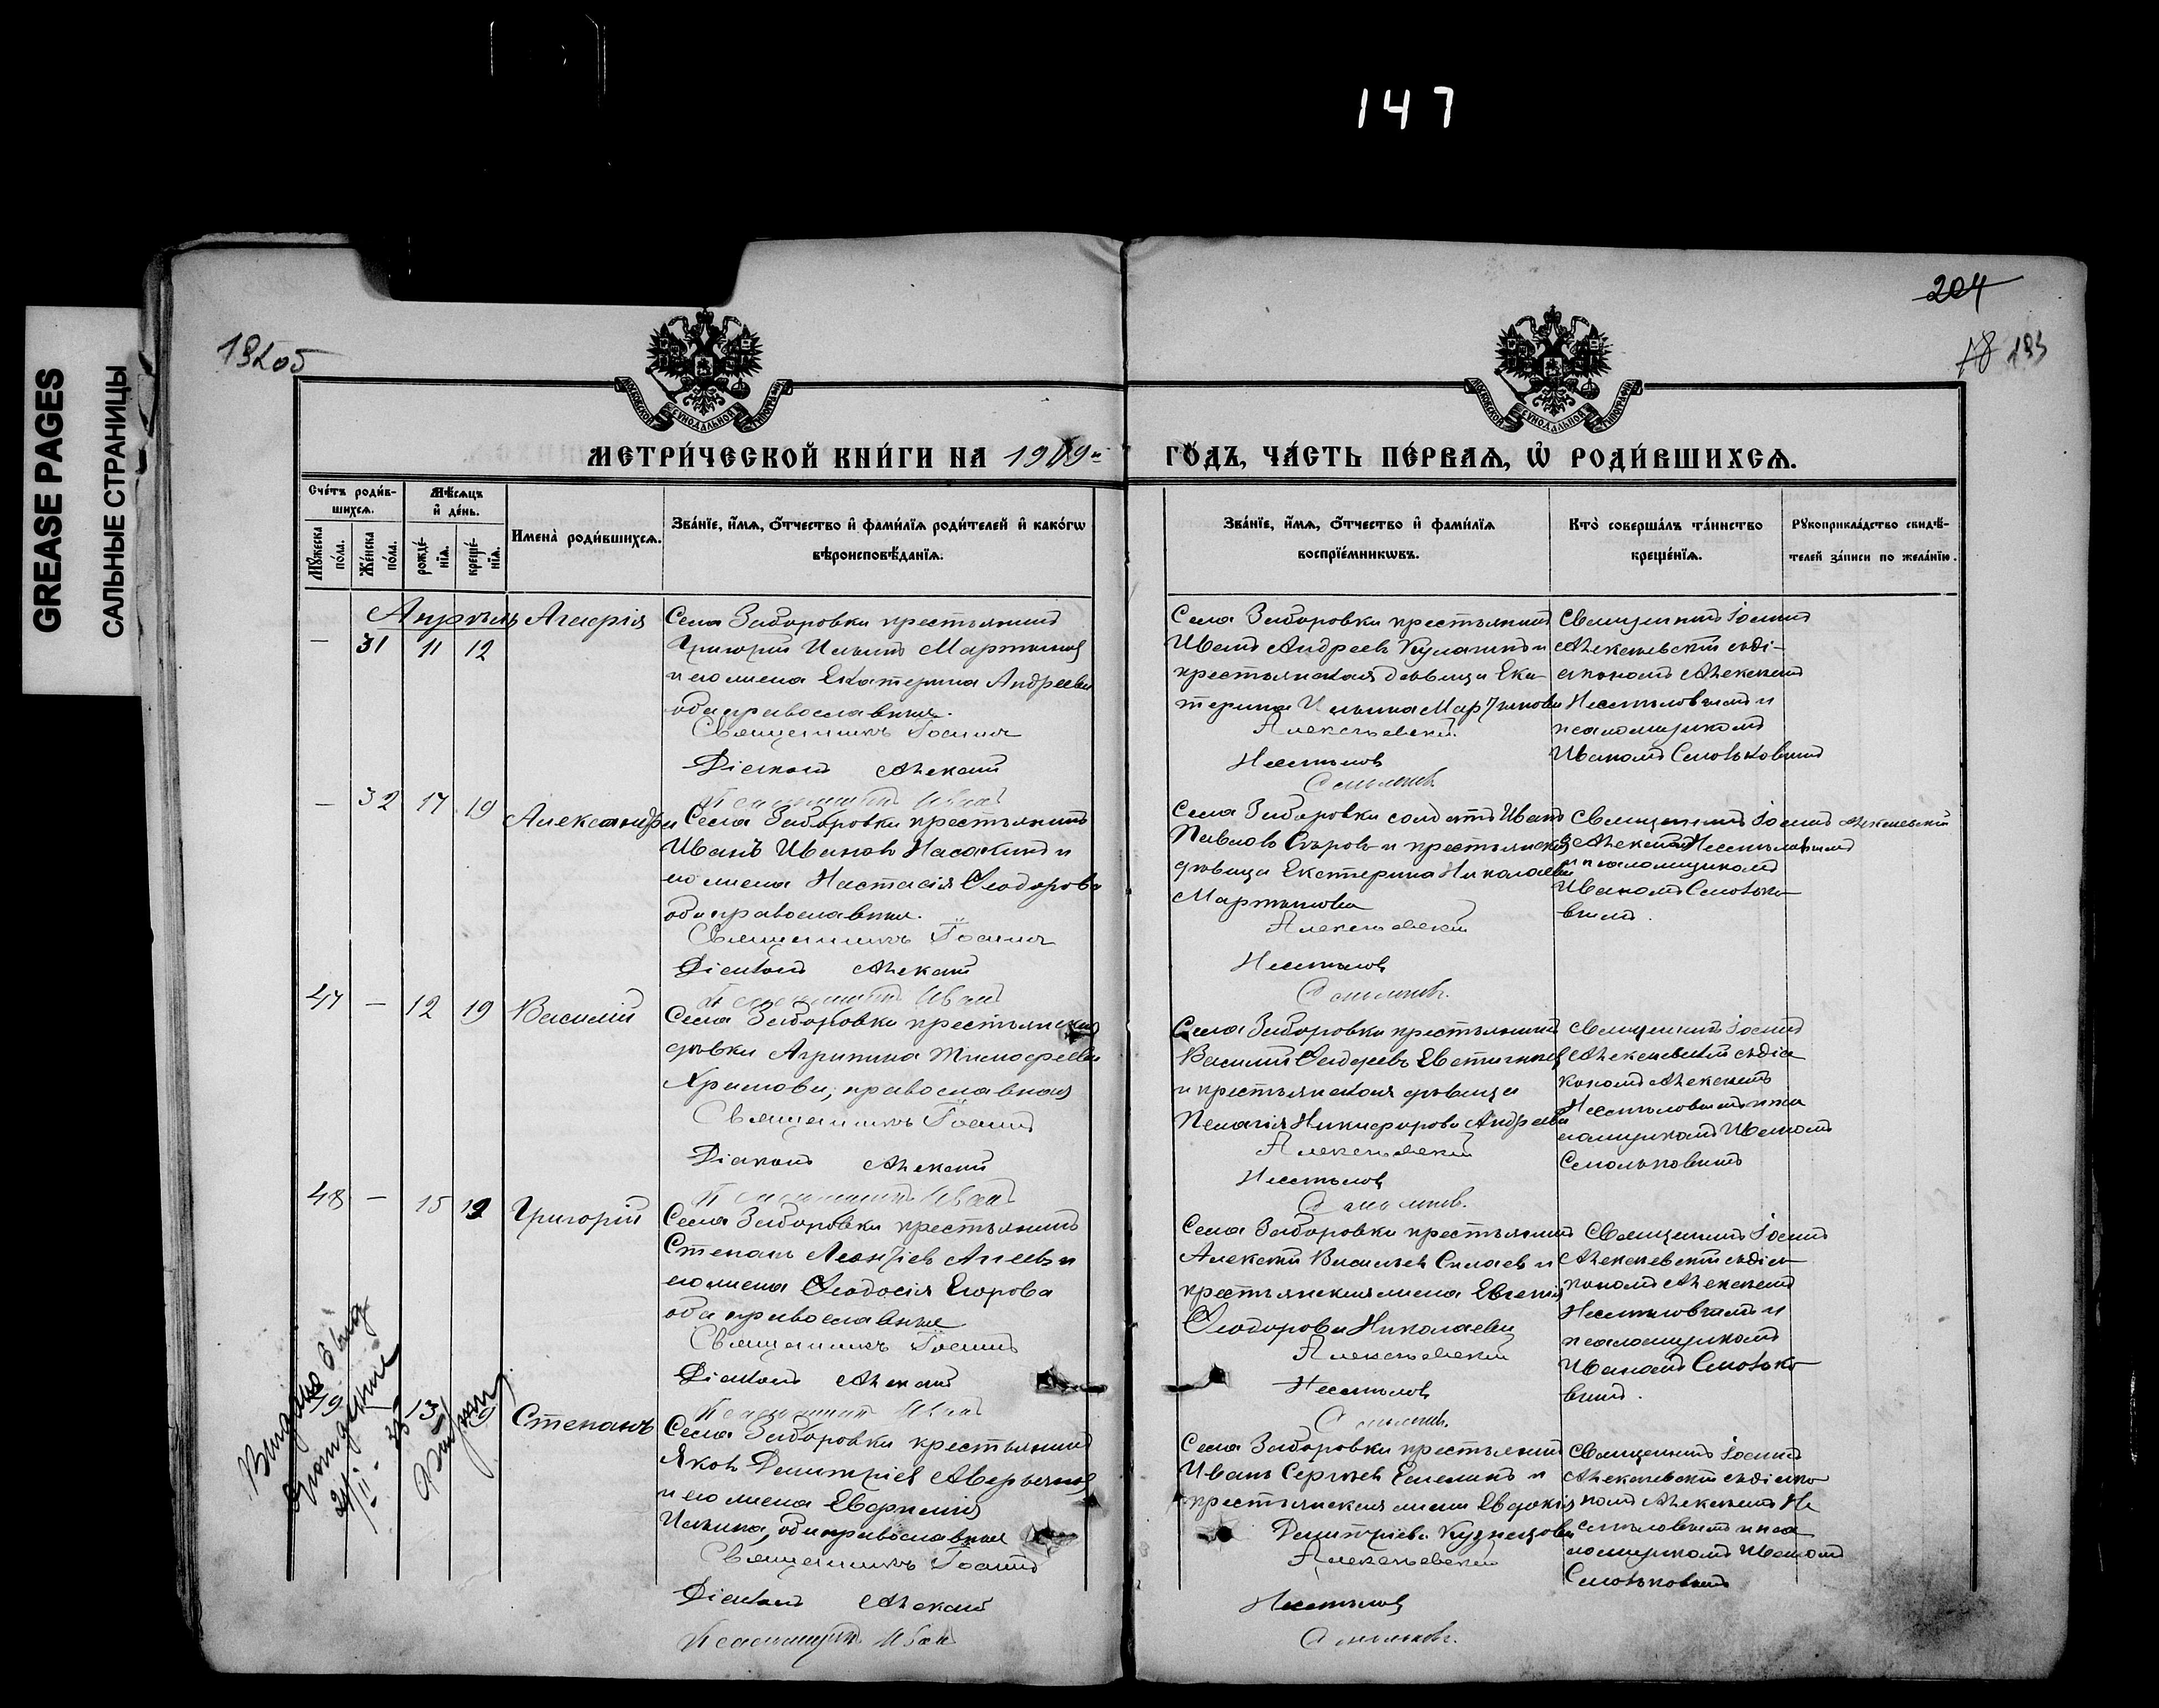 147
GREASE PAGES
САЛЬНЫЕ СТРАНИЦЫ
192об
204
18 193
МЕТРИ́ЧЕСКОЙ КНИ́ГИ НА 1909й
ГО́ДЪ, ЧА́СТЬ ПЕ́РВАѦ, Ѡ҆ РОДИ́ВШИХСѦ.
Сче́тъ роди́в-
шихсѧ.
Мꙋ́жеска по́ла.
Же́нска по́ла.
Мѣ́сѧцъ
и҆ де́нь.
рожде́-
нїѧ.
креще́-
нїѧ.
Имена̀ роди́вшихсѧ.
Зва́нїе, и҆́мѧ, ѻ҆́тчество и҆ фами́лїѧ роди́телей и҆ како́гѡ
вѣроисповѣ́данїѧ.
Зва́нїе, и҆́мѧ, ѻ҆́тчество и҆ фами́лїѧ
воспрїе́мникѡвъ.
Кто̀ соверша́лъ та́инство
креще́нїѧ.
Рꙋкоприкла́дство свидѣ́-
телей за́писи по жела́нїю.
Апрѣль
— 31 11 12
Агаѳрія
Села Заборовки крестьянинъ
Григорій Ильинъ Мартыновъ
и его жена Екатерина Андреева
оба православные.
Священникъ Іоаннъ
Діаконъ Алексій
Псаломщикъ Иванъ
Села Заборовки крестьянинъ
Иванъ Андреевъ Кулагинъ и
крестьянская дѣвица Ека-
терина Ильина Мартынова
Алексѣевскій
Нестѣловъ
Смольковъ
Священникъ Іоаннъ
Алексѣевскій съ ді-
акономъ Алексѣемъ
Нестѣловымъ и
псаломщикомъ
Иваномъ Смольковымъ
— 32 17 19
Александра
Села Заборовки крестьянинъ
Иванъ Ивановъ Насакинъ и
его жена Настасія Ѳеодорова
оба православные.
Священникъ Іоаннъ
Діаконъ Алексій
Псаломщикъ Иванъ
Села Заборовки солдатъ Иванъ
Павловъ Съровъ и крестьянская
дѣвица Екатерина Николаева
Мартынова
Алексѣевскій
Нестѣловъ
Смольковъ.
Священникъ Іоаннъ Алексѣевскій
Алексѣемъ Нестѣловымъ
и псаломщикомъ
Иваномъ Смолько-
вымъ.
47 — 12 19
Василій
Села Заборовки крестьянская
дѣвка Агрипина Тимофеева
Храмова, православная
Священникъ Іоаннъ
Діаконъ Алексій
Псаломщикъ Иванъ
Села Заборовки крестьянинъ
и крестьянская дѣвица
Пелагія Никифорова Андреева
Алексѣевскій
Нестѣловъ
Смольковъ.
Священникъ Іоаннъ
Алексѣевскій съ діа-
кономъ Алексѣемъ
Нестѣловымъ и пса-
ломщикомъ Иваномъ
Смольковымъ
48 — 15 19
Григорій
Села Заборовки крестьянинъ
Степанъ Леонтіевъ Агеевъ и
его жена Ѳеодосія Егорова
оба православные
Священникъ Іоаннъ
Діаконъ Алексій
Псаломщикъ Иванъ
Села Заборовки крестьянинъ
Алексѣй Васильевъ Силаевъ и
крестьянская жена Евгенія
Ѳеодорова Николаева
Алексѣевскій
Нестѣловъ
Смольковъ.
Священникъ Іоаннъ
Алексѣевскій съ діа-
кономъ Алексѣемъ
Нестѣловымъ и
псаломщикомъ
Иваномъ Смолько-
вымъ.
13 19
Степанъ
Села Заборовки крестьянинъ
Яковъ Димитріевъ Аверьяновъ
и его жена Евфимія
Ильина, оба православные
Священникъ Іоаннъ
Діаконъ Алексій
Псаломщикъ Иванъ
Села Заборовки крестьянинъ
Иванъ Сергѣевъ Емелинъ и
крестьянская жена Евдокія
Димитріева Кузнецова
Алексѣевскій
Нестѣловъ
Смольковъ.
Священникъ Іоаннъ
Алексѣевскій съ діако-
номъ Алексѣемъ Не-
стѣловымъ и пса-
ломщикомъ Иваномъ
Смольковымъ